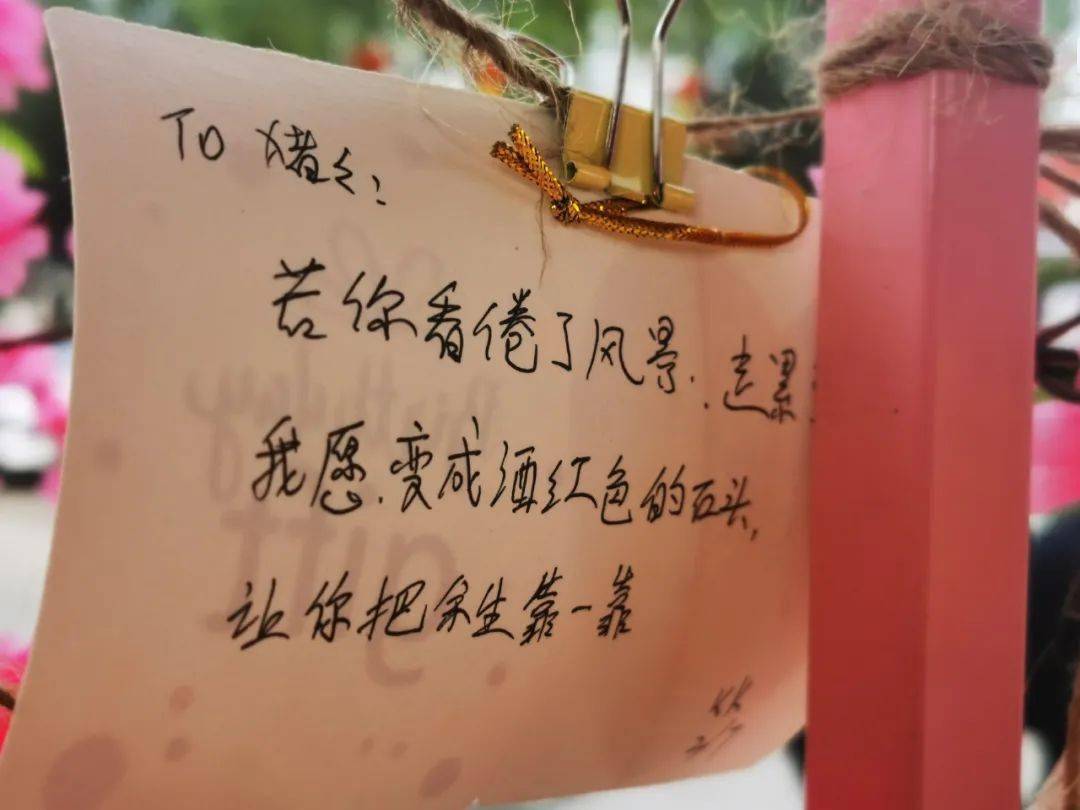 To 猪々:
若你看倦了风景,走累
我愿.变成酒红色的石头,
让你把余生靠一靠